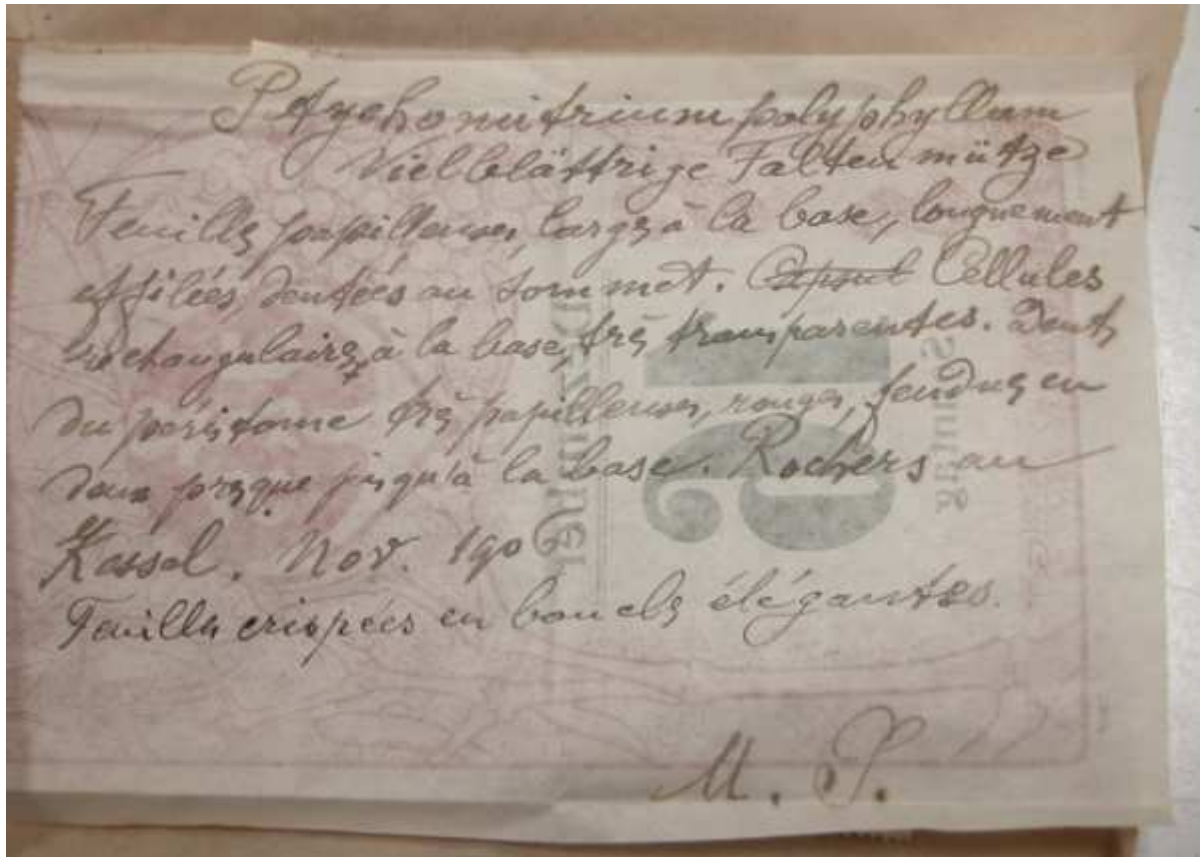 Ptychomitrium polyphyllum
Vielblättrige Faltenmütze
Feuilles papilleuses, larges à la base, longuement
effilées, dentées au sommet. Cellules
rectangulaires à la base, très transparentes. Dents
du péristome très papilleuses, rouges, fendues en
deux presque jusqu'à la base. Rochers au
Kassel. Nov. 190
Feuilles crispées en boucles élégantes.
M. P.
10